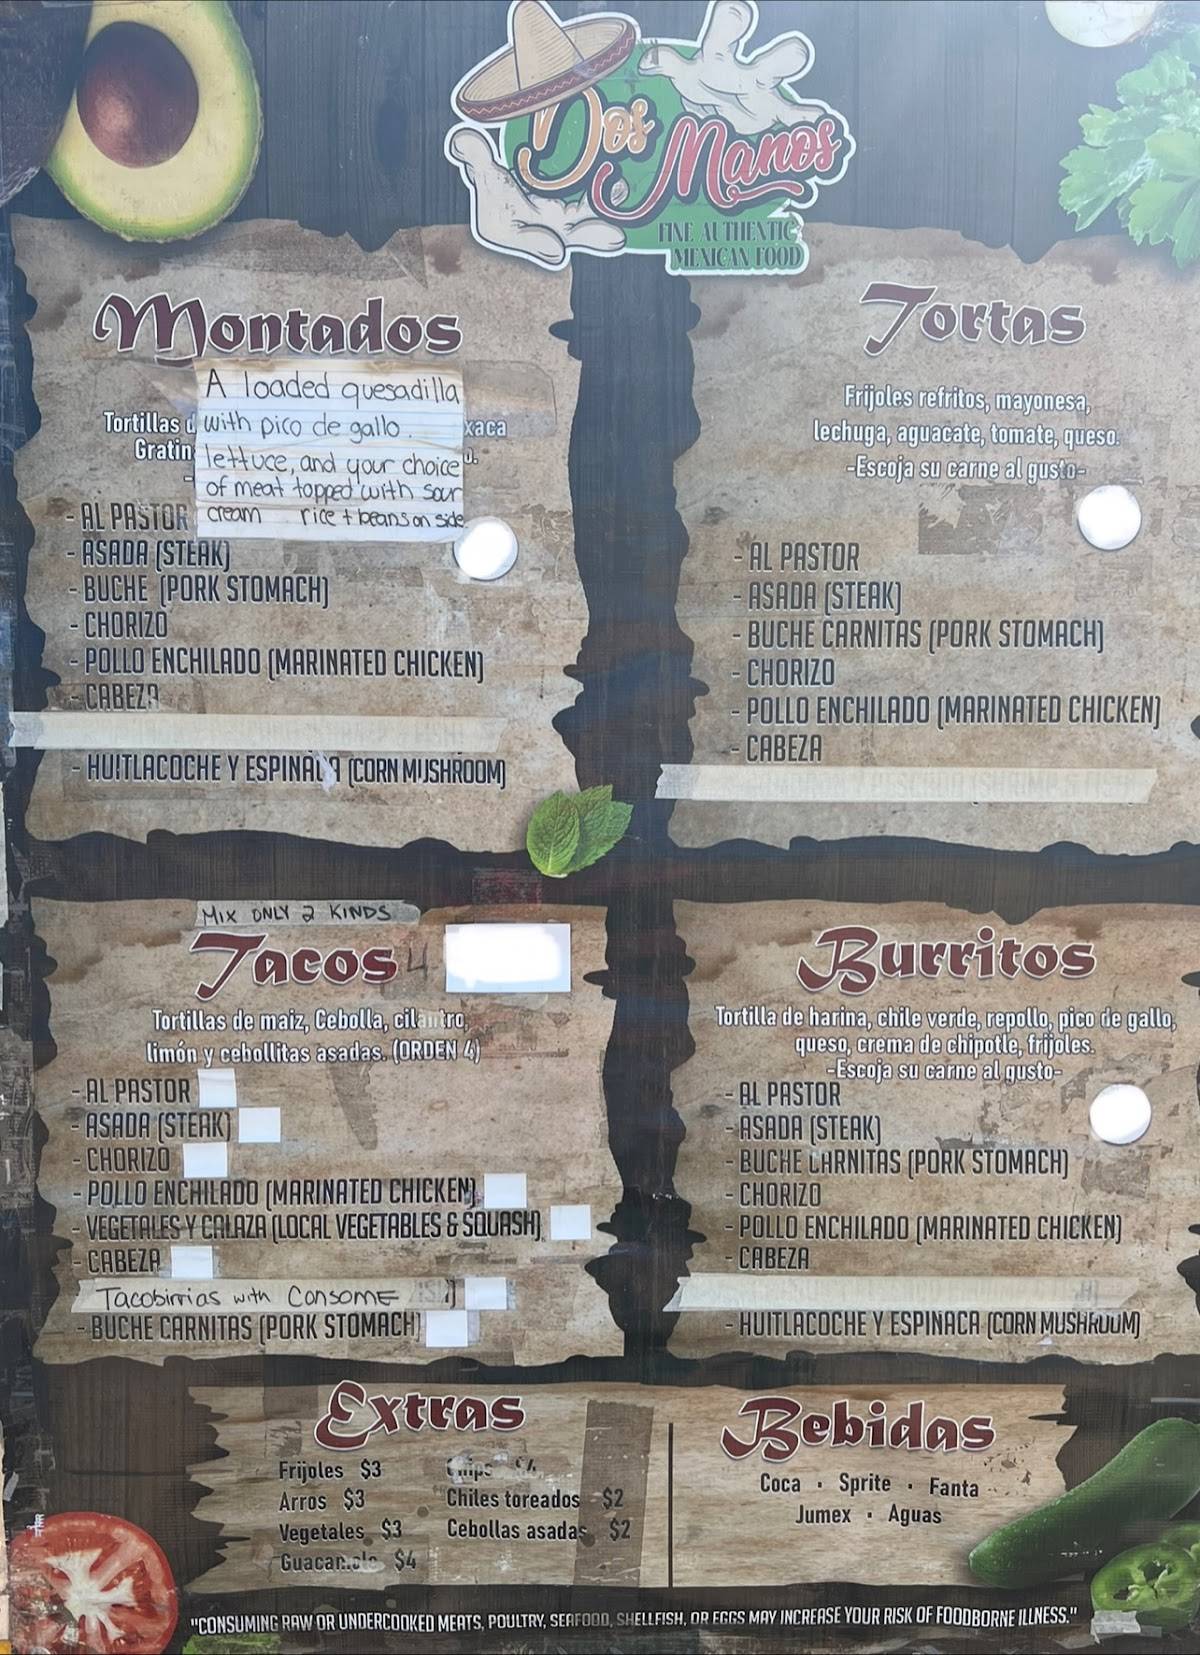 Dos Manos
FINE AUTHENTIC
MEXICAN FOOD
Montados
A loaded quesadilla
Tortillas d with pico de gallo. xaca
Gratin lettuce, and your choice
of meat topped with sour
cream rice + beans on side
- AL PASTOR
- ASADA (STEAK)
- BUCHE (PORK STOMACH)
- CHORIZO
- POLLO ENCHILADO (MARINATED CHICKEN)
- CABEZA
- HUITLACOCHE Y ESPINACA (CORN MUSHROOM)
Tortas
Frijoles refritos, mayonesa,
lechuga, aguacate, tomate, queso.
-Escoja su carne al gusto-
- AL PASTOR
- ASADA (STEAK)
- BUCHE CARNITAS (PORK STOMACH)
- CHORIZO
- POLLO ENCHILADO (MARINATED CHICKEN)
- CABEZA
MIX ONLY 2 KINDS
Tacos 4
Tortillas de maiz, Cebolla, cilantro,
limón y cebollitas asadas. (ORDEN 4)
- AL PASTOR
- ASADA (STEAK)
- CHORIZO
- POLLO ENCHILADO (MARINATED CHICKEN)
- VEGETALES Y CALAZA (LOCAL VEGETABLES & SQUASH)
- CABEZA
Tacobirrias with Consome
- BUCHE CARNITAS (PORK STOMACH)
Burritos
Tortilla de harina, chile verde, repollo, pico de gallo,
queso, crema de chipotle, frijoles.
-Escoja su carne al gusto-
- AL PASTOR
- ASADA (STEAK)
- BUCHE CARNITAS (PORK STOMACH)
- CHORIZO
- POLLO ENCHILADO (MARINATED CHICKEN)
- CABEZA
- HUITLACOCHE Y ESPINACA (CORN MUSHROOM)
Extras
Frijoles $3
Arros $3
Vegetales $3
Guacamole $4
Chips $4
Chiles toreados $2
Cebollas asadas $2
Bebidas
Coca · Sprite · Fanta
Jumex · Aguas
"CONSUMING RAW OR UNDERCOOKED MEATS, POULTRY, SEAFOOD, SHELLFISH, OR EGGS MAY INCREASE YOUR RISK OF FOODBORNE ILLNESS."